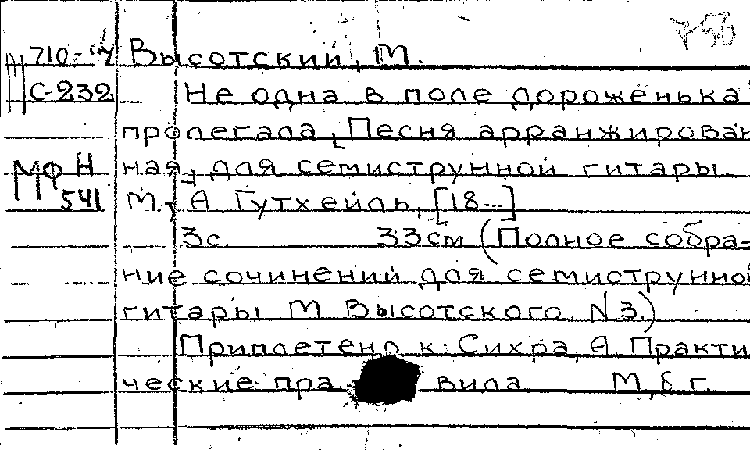 Высотский, М.
С-232 Не одна в поле дороженька
пролегала, [Песня арранжирован
МФ Н ная] для семиструнной гитары.
541 М., А Гутхейль, [18...]
3с. 33см (Полное собра-
ние сочинений для семиструнной
гитары М Высотского. N 3.)
Приплетено к: Сихра, А. Практи
ческие пра вила М, б г.